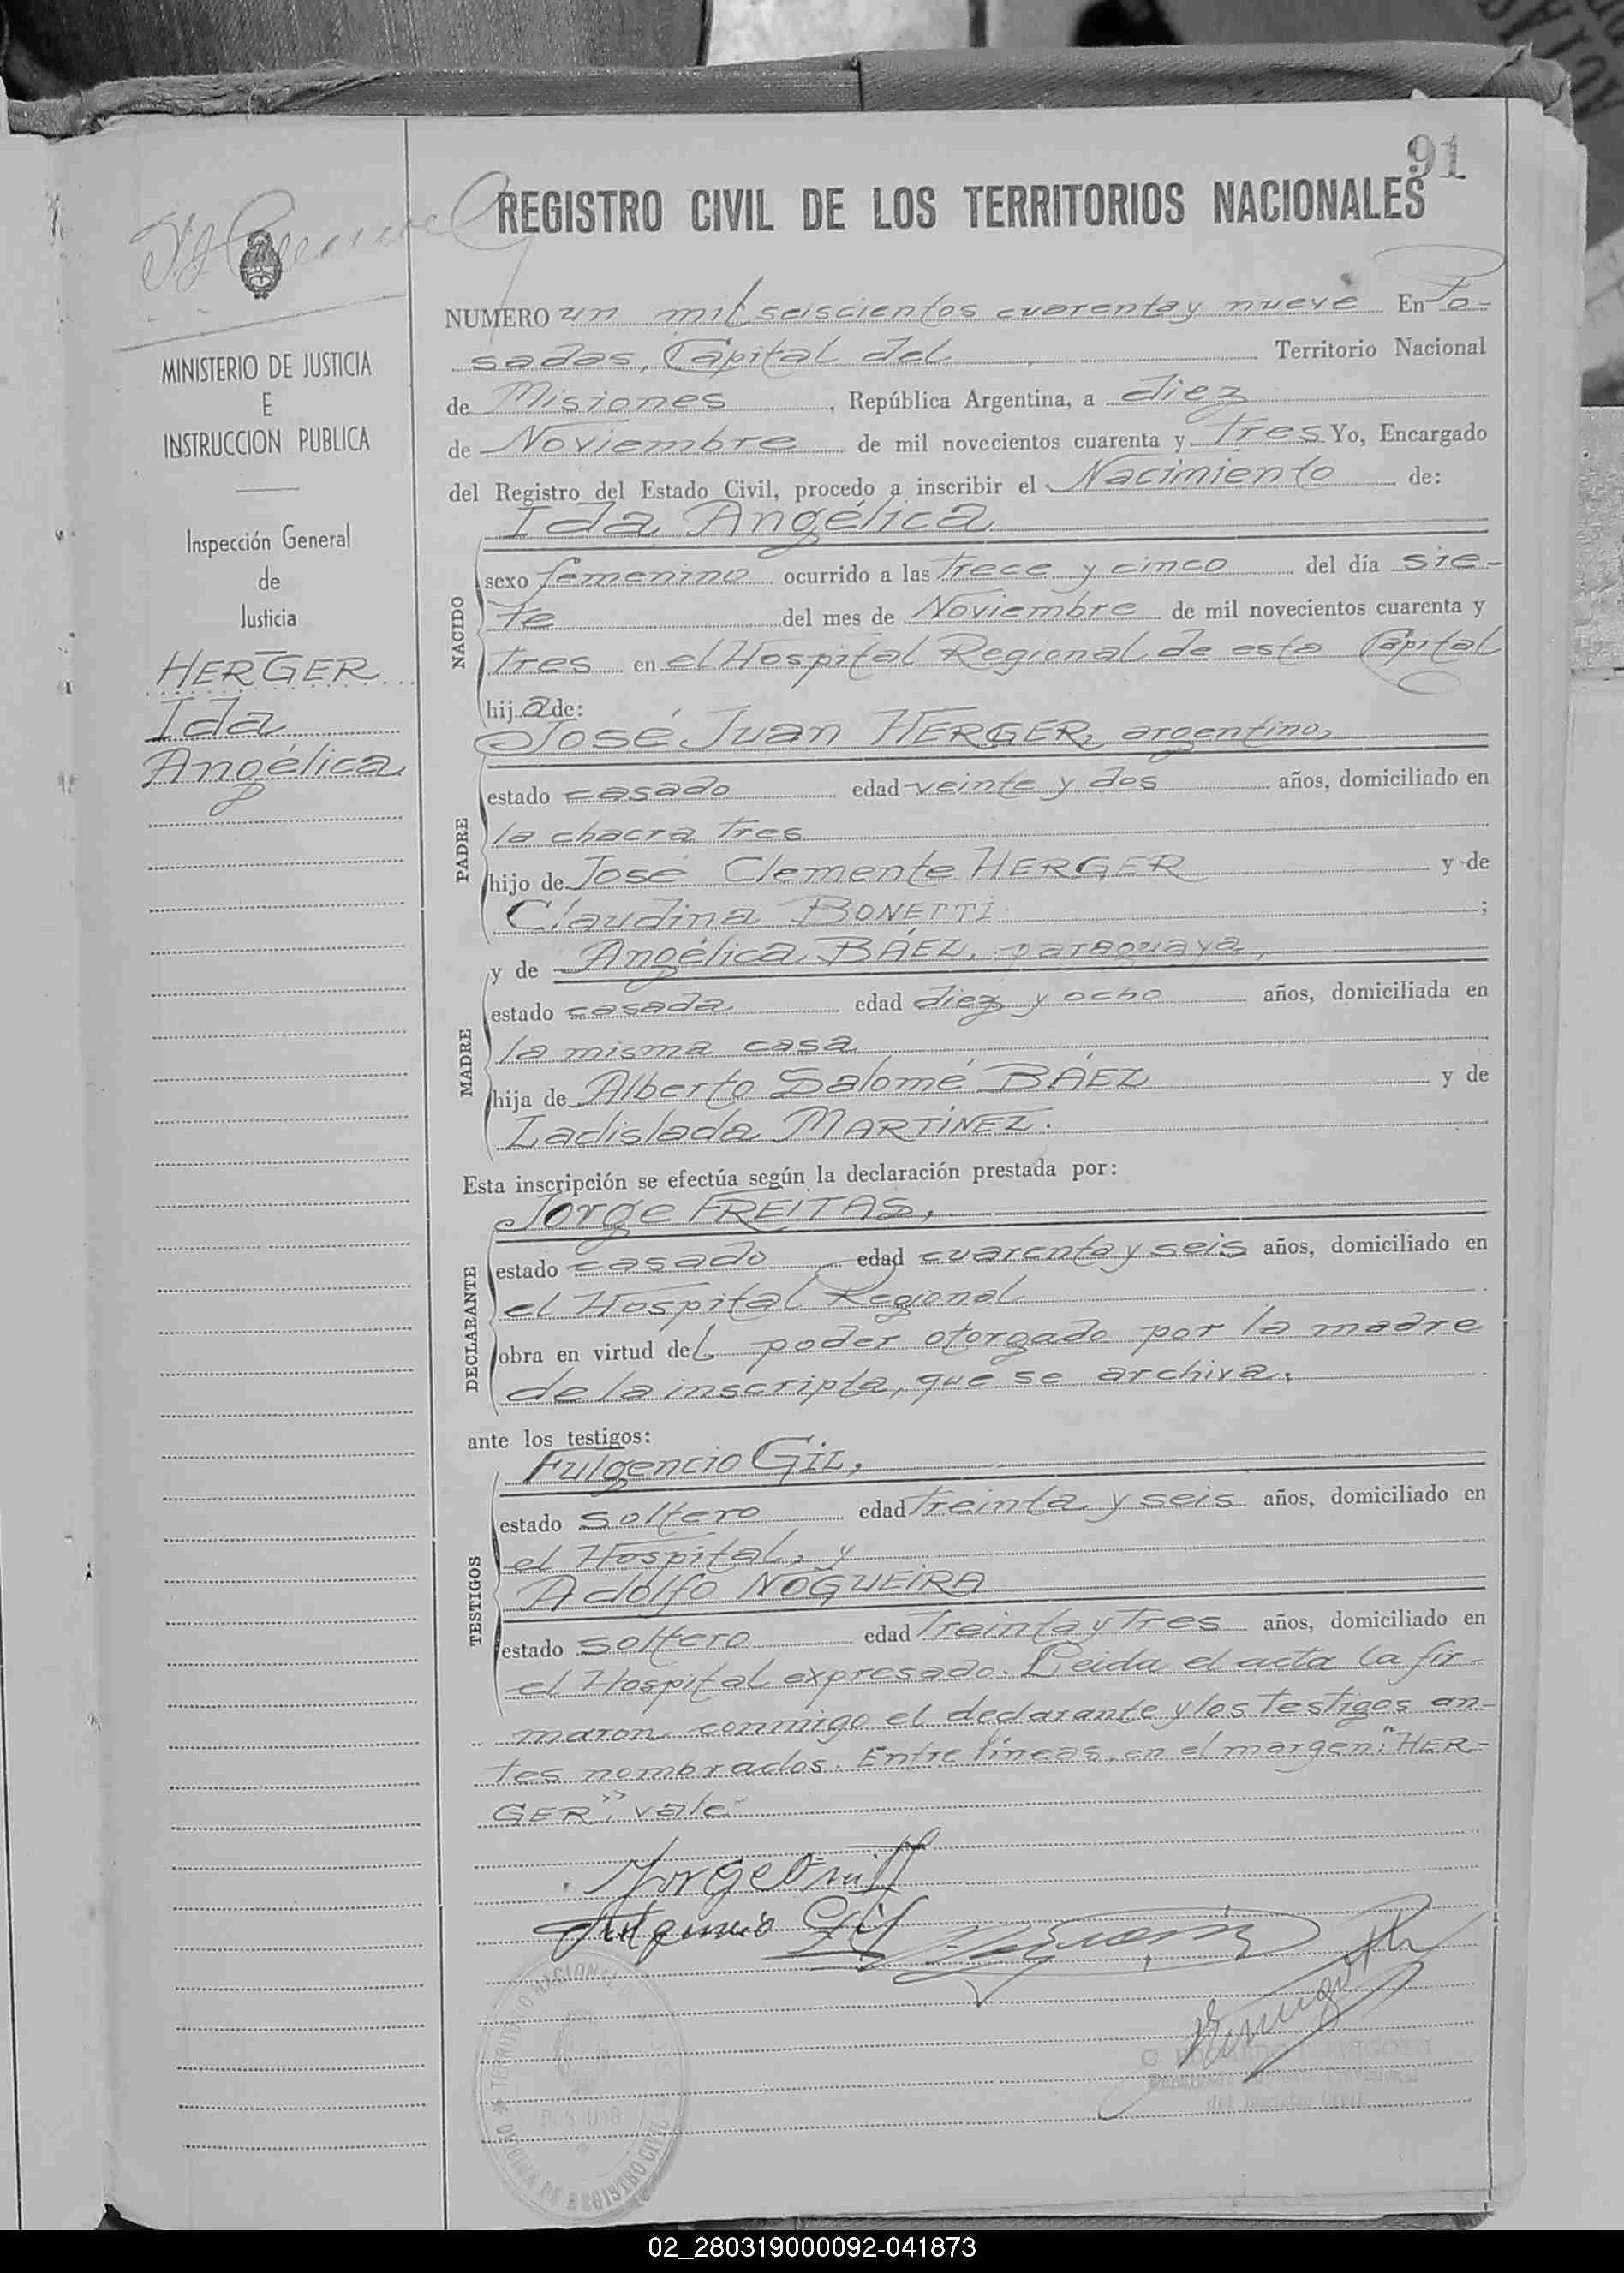 91
REGISTRO CIVIL DE LOS TERRITORIOS NACIONALES
MINISTERIO DE JUSTICIA
E
INSTRUCCION PUBLICA
Inspección General
de
Justicia
HERGER
Ida
Angélica
NUMERO un mil seiscientos cuarenta y nueve En Po-
sadas, Capital del Territorio Nacional
de Misiones, República Argentina, a diez
de Noviembre de mil novecientos cuarenta y tres Yo, Encargado
del Registro del Estado Civil, procedo a inscribir el Nacimiento de:
Ida Angélica
NACIDO
sexo femenino ocurrido a las trece y cinco del día sie-
te del mes de Noviembre de mil novecientos cuarenta y
tres en el Hospital Regional de esta Capital
hija de:
José Juan HERGER, argentino,
PADRE
estado casado edad veinte y dos años, domiciliado en
la chacra tres
hijo de José Clemente HERGER y de
Claudina BONETTI ;
y de Angélica BÁEZ, paraguaya,
MADRE
estado casada edad diez y ocho años, domiciliada en
la misma casa
hija de Alberto Salomé BÁEZ y de
Ladislada MARTÍNEZ.
Esta inscripción se efectúa según la declaración prestada por:
Jorge FREITAS,
DECLARANTE
estado casado edad cuarenta y seis años, domiciliado en
el Hospital Regional
obra en virtud del poder otorgado por la madre
de la inscripta, que se archiva.
ante los testigos:
Fulgencio GIL,
TESTIGOS
estado soltero edad treinta y seis años, domiciliado en
el Hospital, y
Adolfo NOGUEIRA
estado soltero edad treinta y tres años, domiciliado en
el Hospital expresado. Leida el acta la fir-
maron conmigo el declarante y los testigos an-
tes nombrados. Entre líneas, en el margen: "HER-
GER": vale
Fulgencio Gil
TERRITORIO NACIONAL
OFICINA DE REGISTRO CIVIL
POSADAS
del Registro Civil
02_280319000092-041873